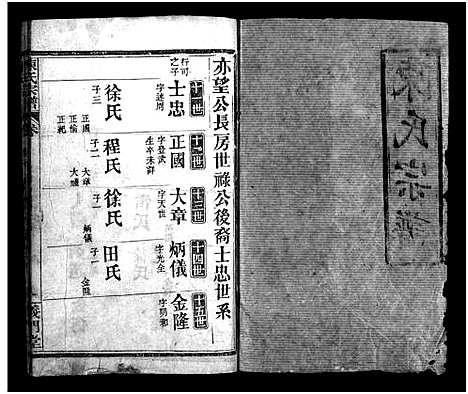 陳氏宗譜
亦望公長房世祿公後裔士忠世系
十一世
十二世
十三世
十四世
十五世
行可之子
士忠 字述周
正國 字登武 生卒未詳
大章 字天世
炳儀 字光全
金隆
徐氏
子三
正國
正倫
正祀
程氏
子二
大章
徐氏
子一
炳儀
田氏
子一
金隆
陳氏宗譜
義門堂